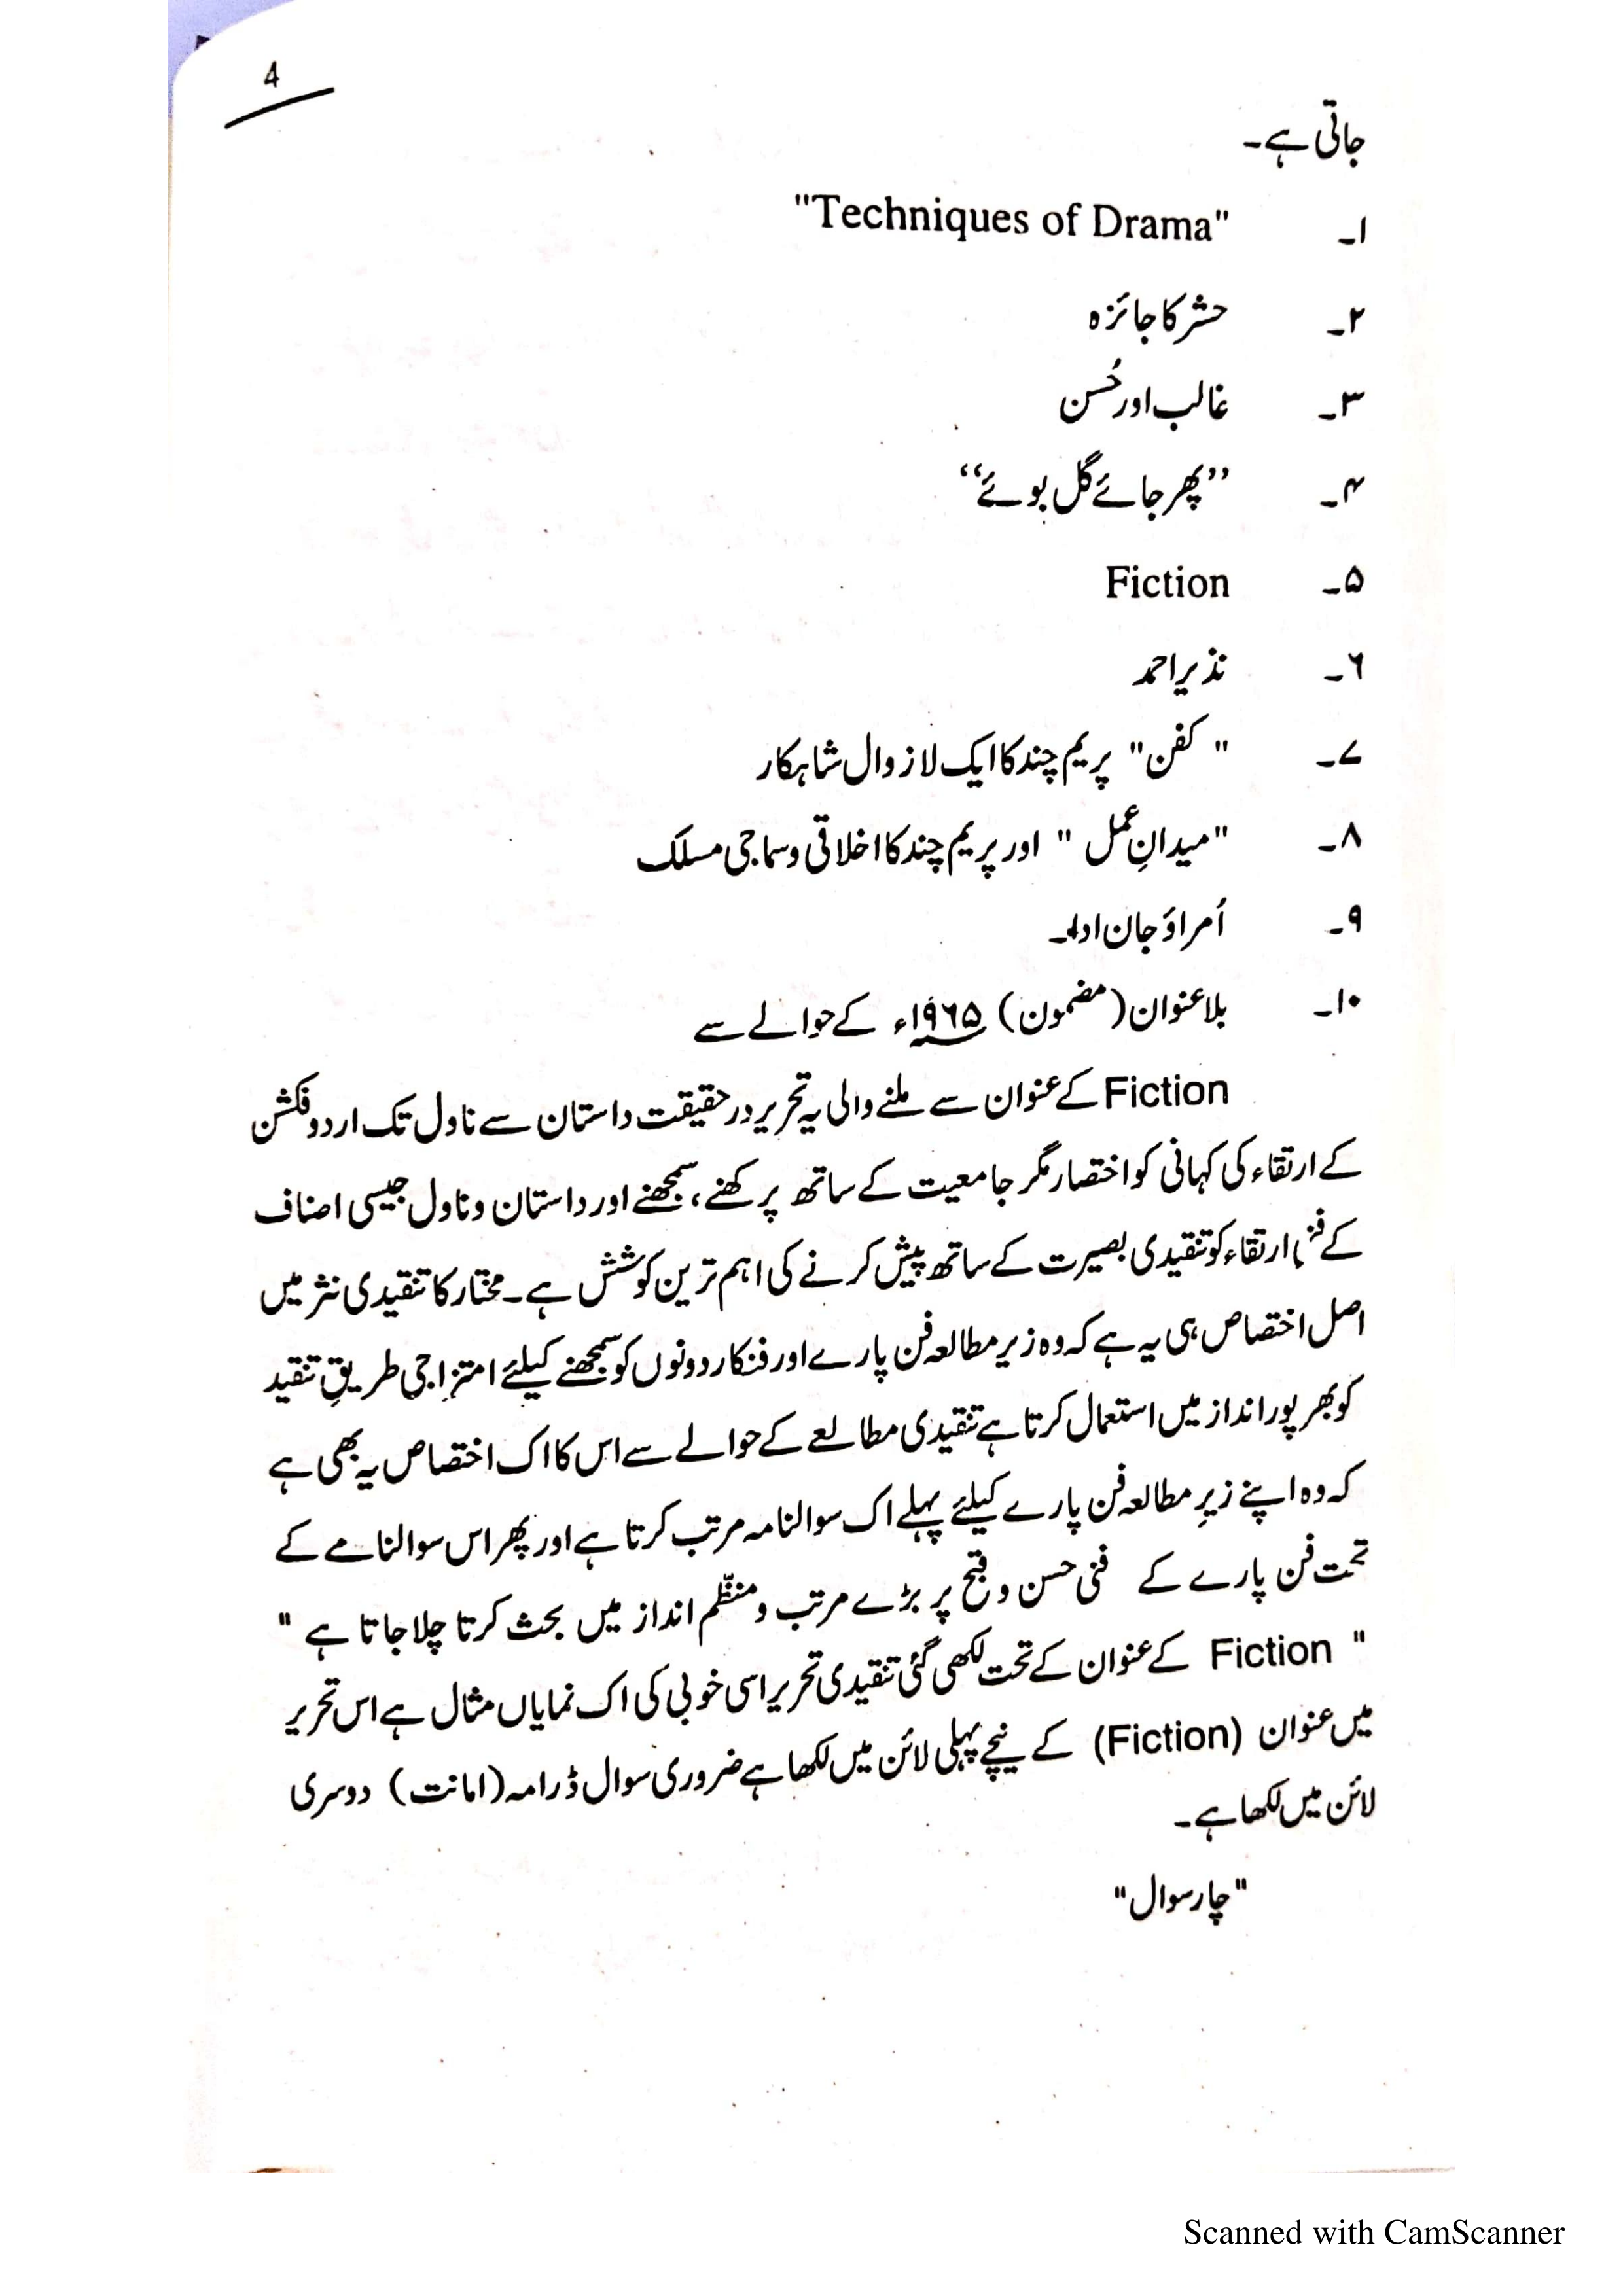 4
جاتی ہے۔
۱۔ "Techniques of Drama"
۲۔ حشر کا جائزہ
۳۔ غالب اور حُسن
۴۔ ’’پھر جائے گل بوئے‘‘
۵۔ Fiction
۶۔ نذیر احمد
۷۔ " کفن" پریم چند کا ایک لازوال شاہکار
۸۔ "میدانِ عمل " اور پریم چند کا اخلاقی و سماجی مسلک
۹۔ اُمراؤ جان ادا۔
۱۰۔ بلا عنوان (مضمون) ۱۹۶۵ء کے حوالے سے
Fiction کے عنوان سے ملنے والی یہ تحریر در حقیقت داستان سے ناول تک اردو فکشن
کے ارتقاء کی کہانی کو اختصار مگر جامعیت کے ساتھ پرکھنے، سمجھنے اور داستان و ناول جیسی اصناف
کے فنی ارتقاء کو تنقیدی بصیرت کے ساتھ پیش کرنے کی اہم ترین کوشش ہے۔ مختار کا تنقیدی نثر میں
اصل اختصاص ہی یہ ہے کہ وہ زیرِ مطالعہ فن پارے اور فنکار دونوں کو سمجھنے کیلئے امتزاجی طریقِ تنقید
کو بھرپور انداز میں استعمال کرتا ہے تنقیدی مطالعے کے حوالے سے اس کا اک اختصاص یہ بھی ہے
کہ وہ اپنے زیرِ مطالعہ فن پارے کیلئے پہلے اک سوالنامہ مرتب کرتا ہے اور پھر اس سوالنامے کے
تحت فن پارے کے فنی حسن و قبح پر بڑے مرتب و منظّم انداز میں بحث کرتا چلا جاتا ہے "
" Fiction کے عنوان کے تحت لکھی گئی تنقیدی تحریر اسی خوبی کی اک نمایاں مثال ہے اس تحریر
میں عنوان (Fiction) کے نیچے پہلی لائن میں لکھا ہے ضروری سوال ڈرامہ (امانت) دوسری
لائن میں لکھا ہے۔
"چار سوال"
Scanned with CamScanner